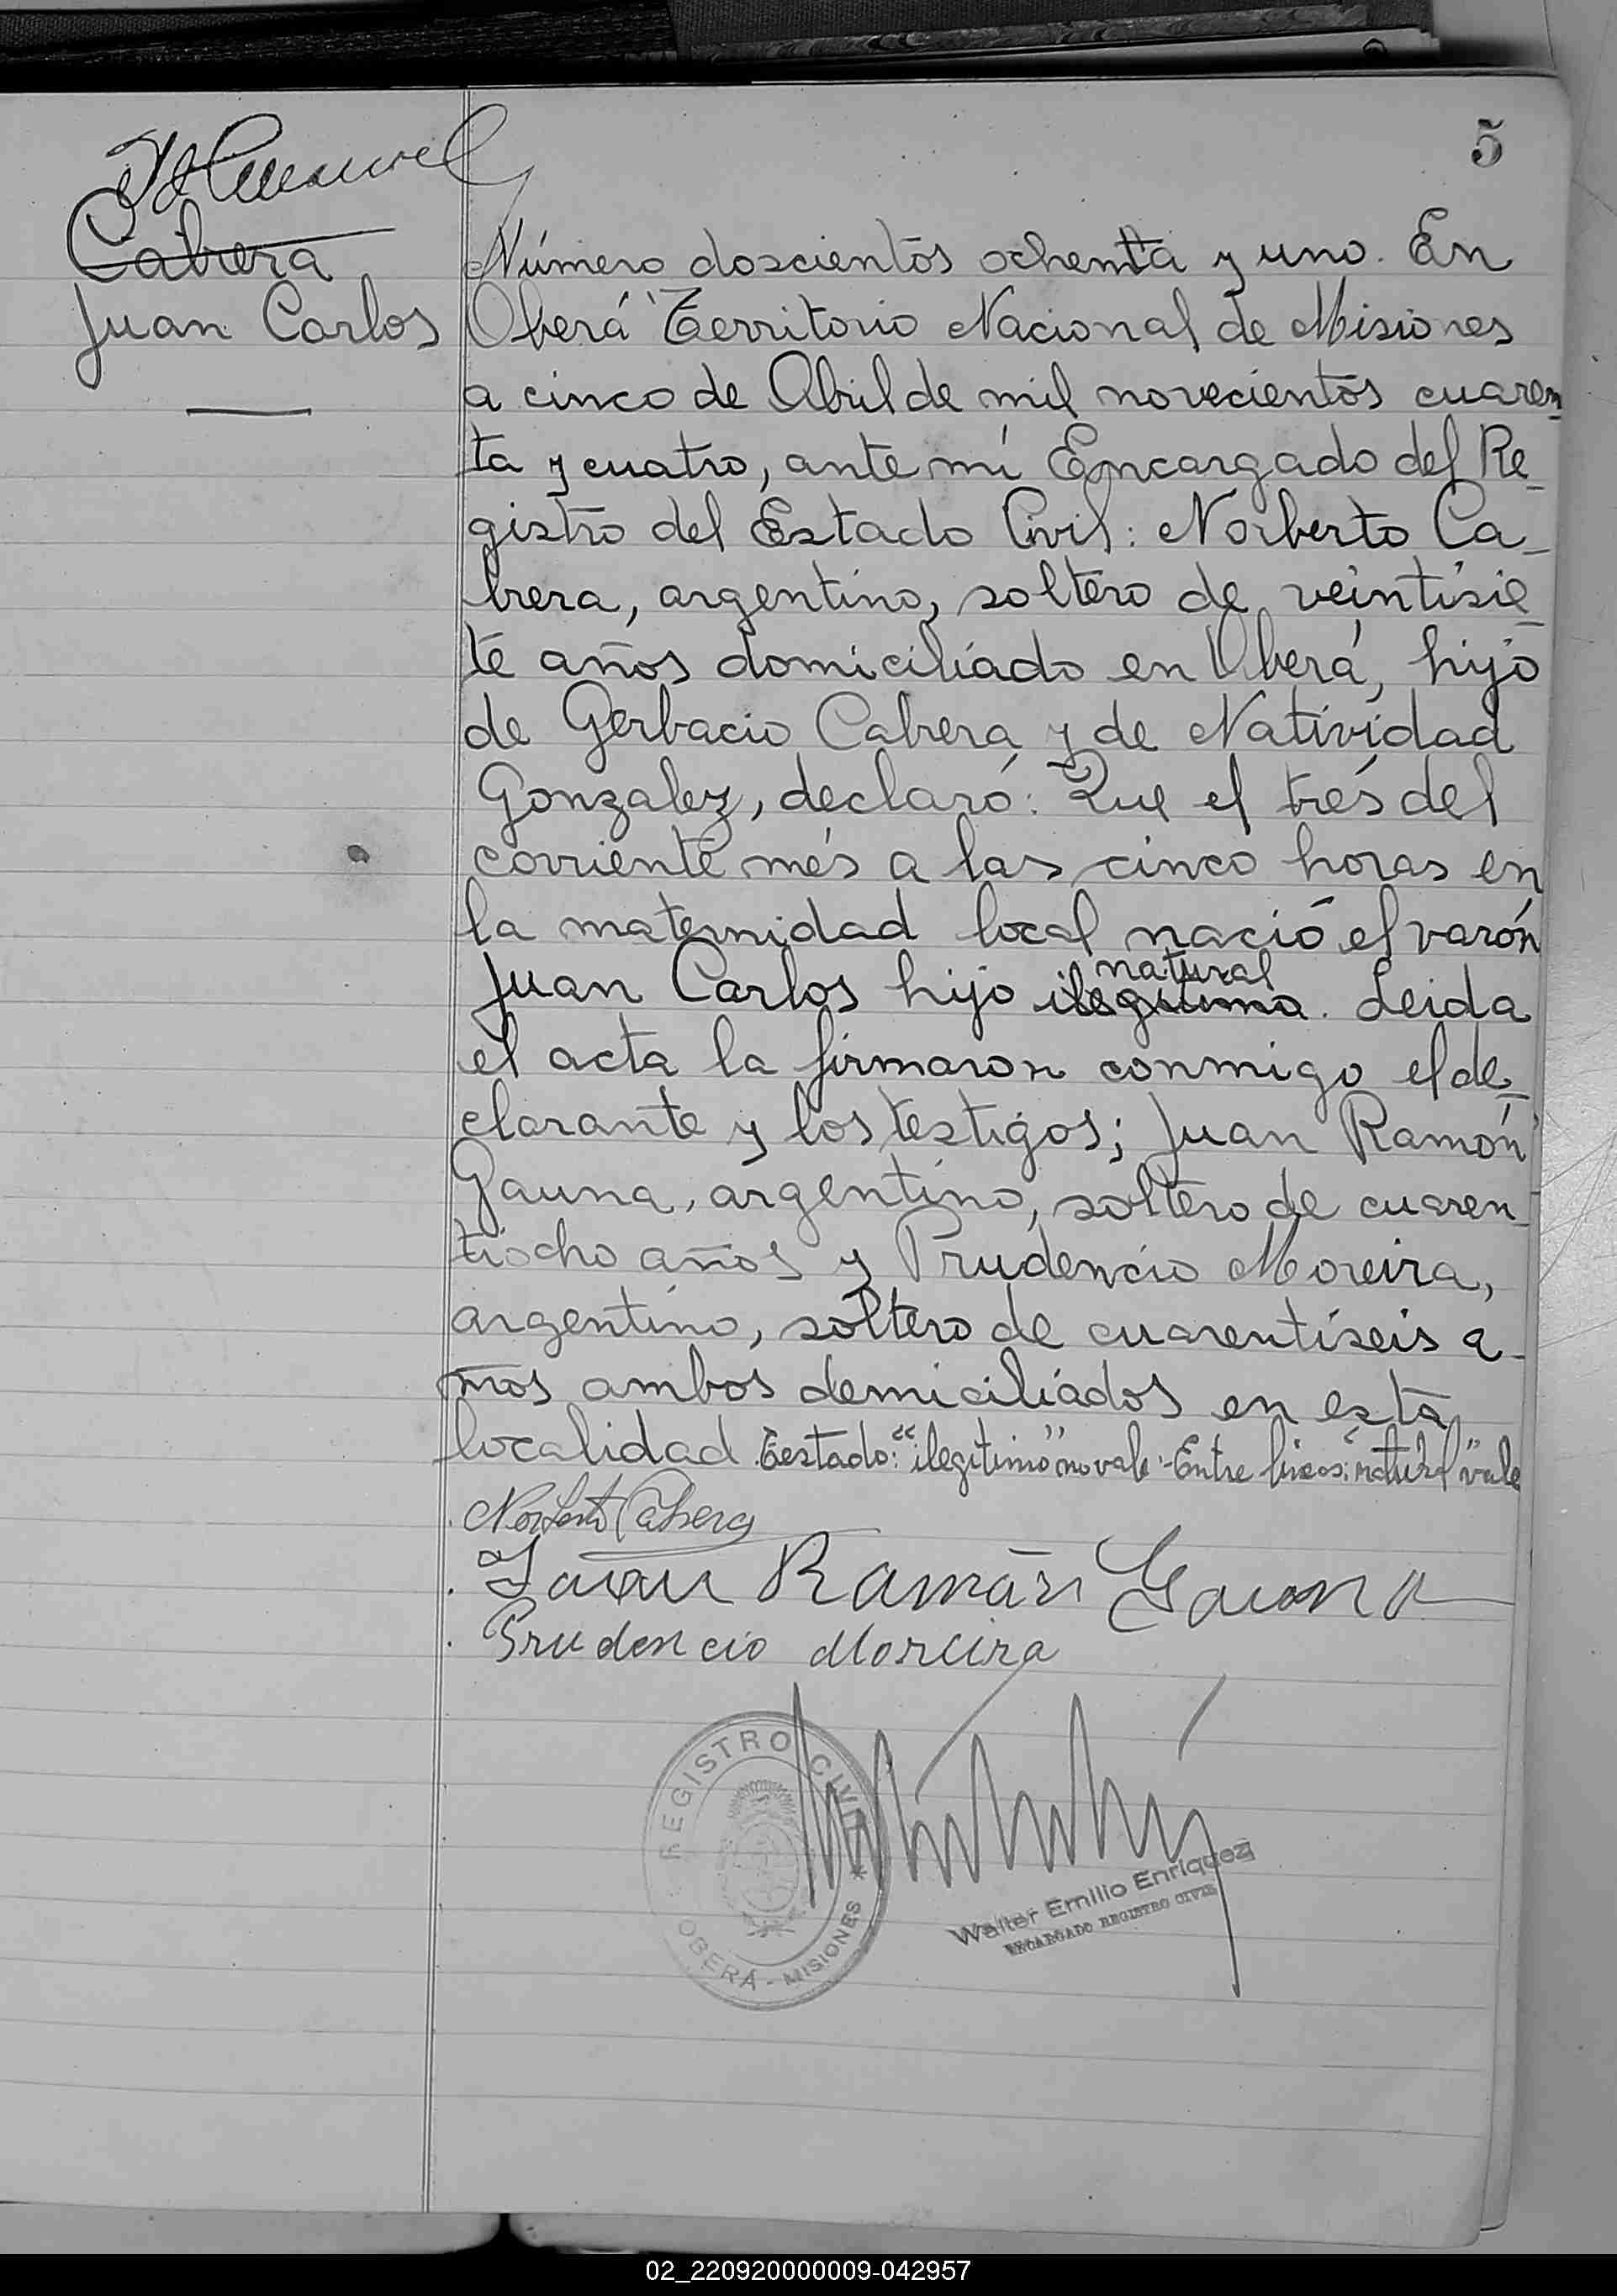 5
Cabrera
Juan Carlos
Número doscientos ochenta y uno. En
Oberá Territorio Nacional de Misiones
a cinco de Abril de mil novecientos cuaren-
ta y cuatro, ante mí Encargado del Re-
gistro del Estado Civil: Norberto Ca-
brera, argentino, soltero de veintisie-
te años domiciliado en Oberá, hijo
de Gerbacio Cabrera y de Natividad
Gonzalez, declaró: Que el trés del
corriente més a las cinco horas en
la maternidad local nació el varón
natural
Juan Carlos hijo ilegitimo. Leida
el acta la firmaron conmigo el de-
clarante y los testigos; Juan Ramón
Gauna, argentino, soltero de cuaren-
tiocho años y Prudencio Moreira,
argentino, soltero de cuarentiseis a-
ños ambos demiciliádos en esta
localidad. Testado: "ilegitimo" no vale - Entre líneas: "natural" vale
Norberto Cabrera
Juan Ramón Gauna
Prudencio Moreira
REGISTRO CIVIL
OBERÁ - MISIONES
Walter Emilio Enriquez
ENCARGADO REGISTRO CIVIL
02_220920000009-042957